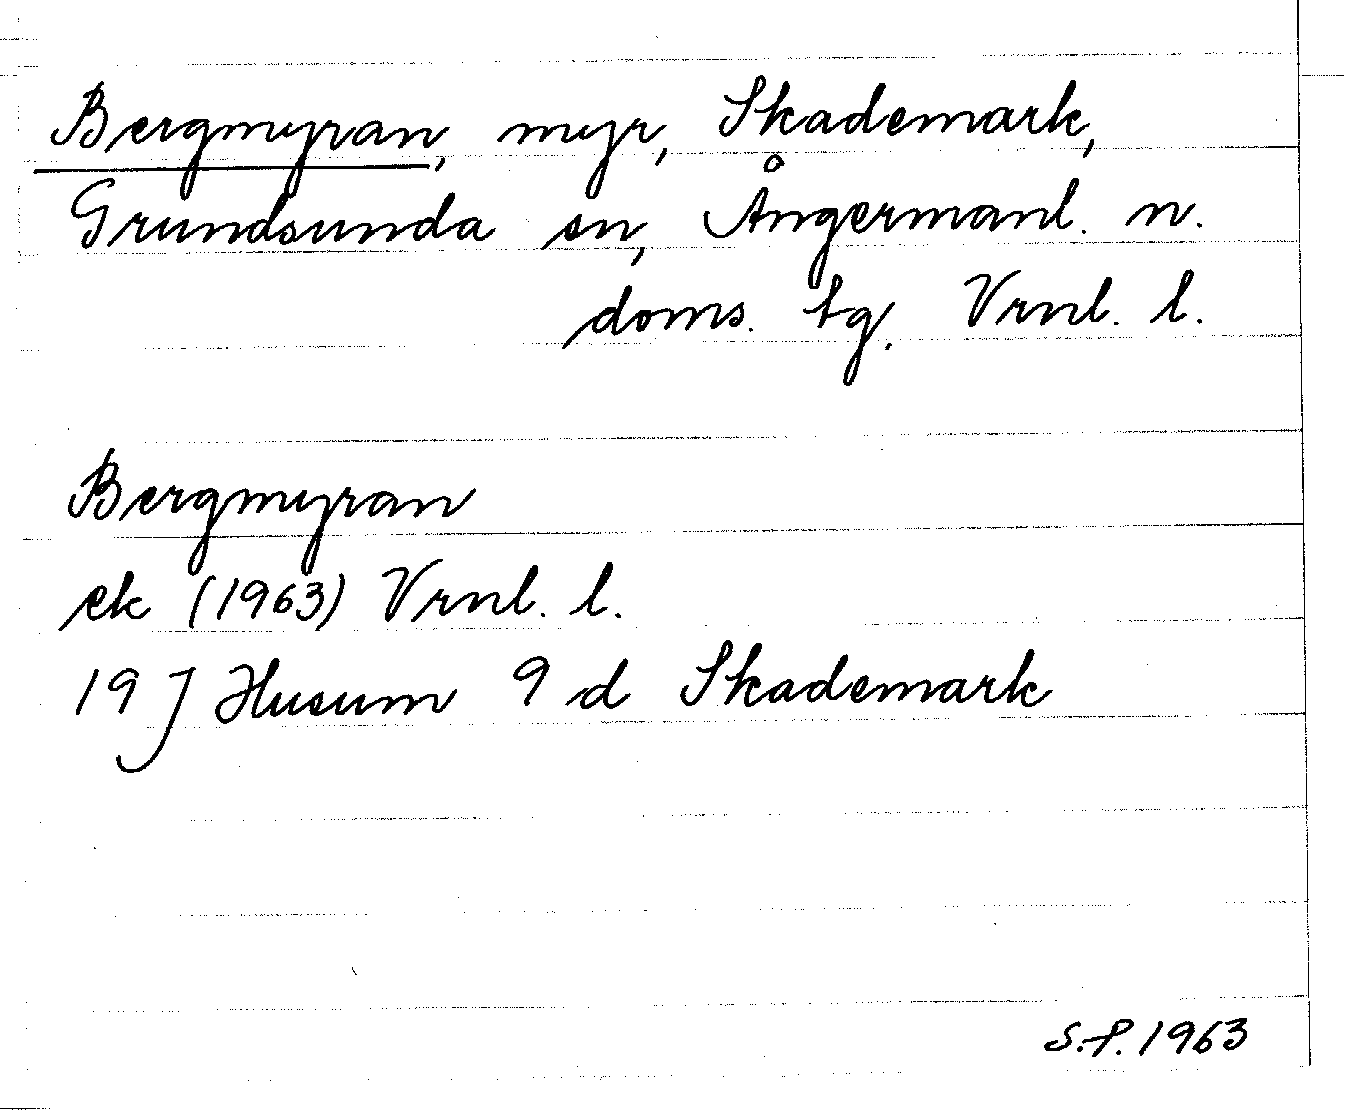 Bergmyran, myr, Skademark,
Grundsunda sn, Ångermanl. n.
doms. tg. Vrnl. l.
Bergmyran
ek (1963) Vrnl. l.
19 J Husum 9 d Skademark
S.P. 1963